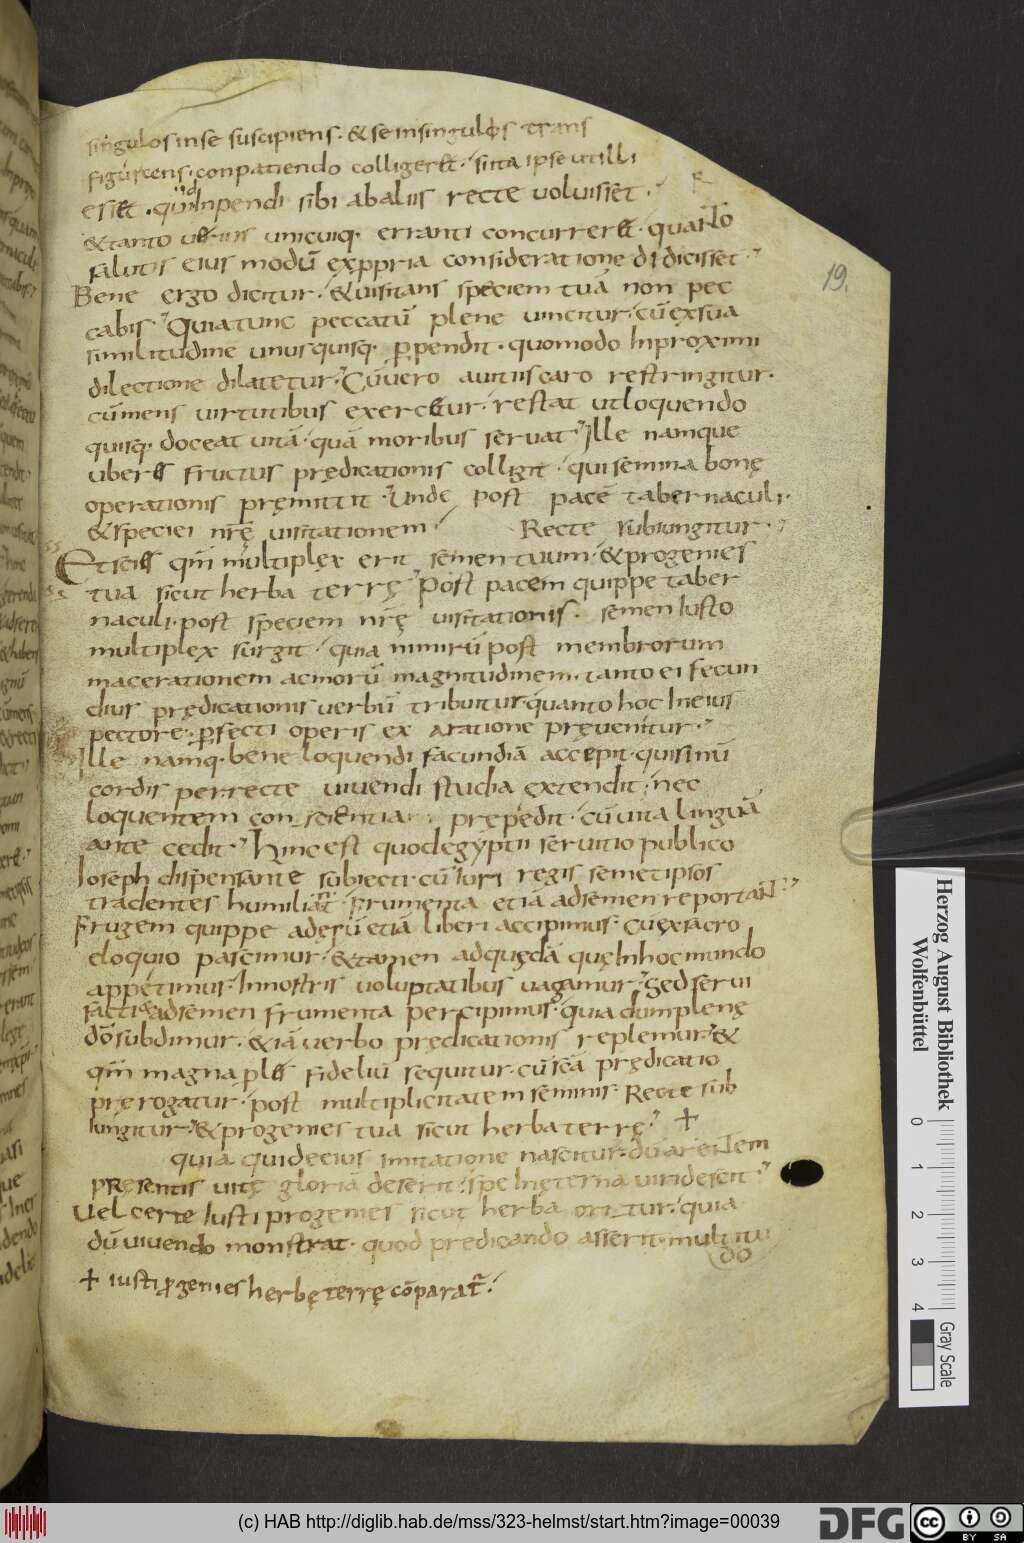 singulos inse suscipiens · & se insingulos trans
figurcens · conpatiendo colliger& · sicta ipse utilli
ess& · quid inpendi sibi abaliis recte voluisset ·
& tanto uerius unicuiq· erranti concurrer& · quanto
salutis eius modū exppria consideratione didicisset ·
Bene ergo dicitur · & uisitans speciem tuā non pec
cabis · Quiatunc peccatū plene uincitur · cū exsua
similitudine unusquisq· ꝑpendit · quomodo Inproximi
dilectione dilatetur · Cū uero autiiscaro restringitur ·
cū mens uirtutibus exerc&ur · restat utloquendo
quisq· doceat uitā · quā moribus seruat · Ille namque
uberes fructus prędicationis colligit · quisemina bonę
operationis pręmittit · Unde post pacē tabernaculi ·
& speciei nrę̄ uisitationem · Recte subiungitur ·
Et scies qm̄ multiplex erit semen tuum · & progenies
tua sicut herba terrę · Post pacem quippe taber
naculi · post speciem nrę̄ uisitationis · semen Iusto
multiplex surgit · quia nimirū post membrorum
macerationem acmorū magnitudinem · tanto ei fecun
dius prędicationis uerbū tribuitur · quanto hoc Ineius
pectore · ꝑfecti operis ex aratione pręuenitur ·
Ille namq· bene loquendi facundiā accepit · quisinū
cordis perrecte uiuendi studia extendit · nec
loquentem conscientia prępedit · cū uita linguā
ante cedit · Hinc est quodegyptii seruitio publico
Ioseph dispensante subiecti · cū iuri regis semetipsos
tradentes humiliant · frumenta etiā adsemen reportant ·
Frugem quippe adesū etiā liberi accipimus · cū exsacro
eloquio pascimur · & tamen adquędā quę Inhoc mundo
appetimus · Innostris uoluptatibus uagamur · Sed serui
facti & adsemen frumenta percipimus · quia dumplenę
dō subdimur · & iā uerbo prędicationis replemur · &
qm̄ magna ples fidelium sequitur · cū scā prędicatio
pręrogatur · post multiplicitatem seminis Recte sub
iungitur · & progenies tua sicut herba terrę · +
quia quideeius imitatione nascitur · dū arentem
pręsentis uitę gloriā deserit · spe Inęterna uiridescit ·
Uel certe Iusti progenies sicut herba oritur · quia
dū uiuendo monstrat · quod predicando asserit · multitu
do
+ iusti progenies herbę terrę cōparat̄ ·
19.
Herzog August Bibliothek
Wolfenbüttel
0 1 2 3 4
Gray Scale
(c) HAB http://diglib.hab.de/mss/323-helmst/start.htm?image=00039
DFG
cc BY SA